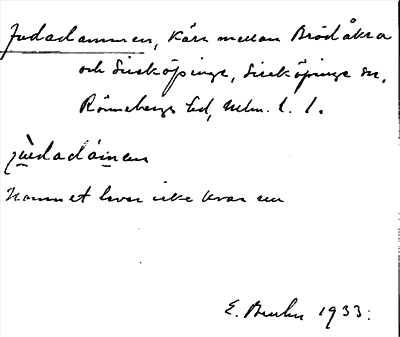 Judadammen, Kärr mellan Brödåkra
och Sireköpinge, Sireköpinge sn,
Rönnebergs hd, Mlm. l. l.
jùdadámen
Namnet lever icke kvar
E. Bruhn 1933.